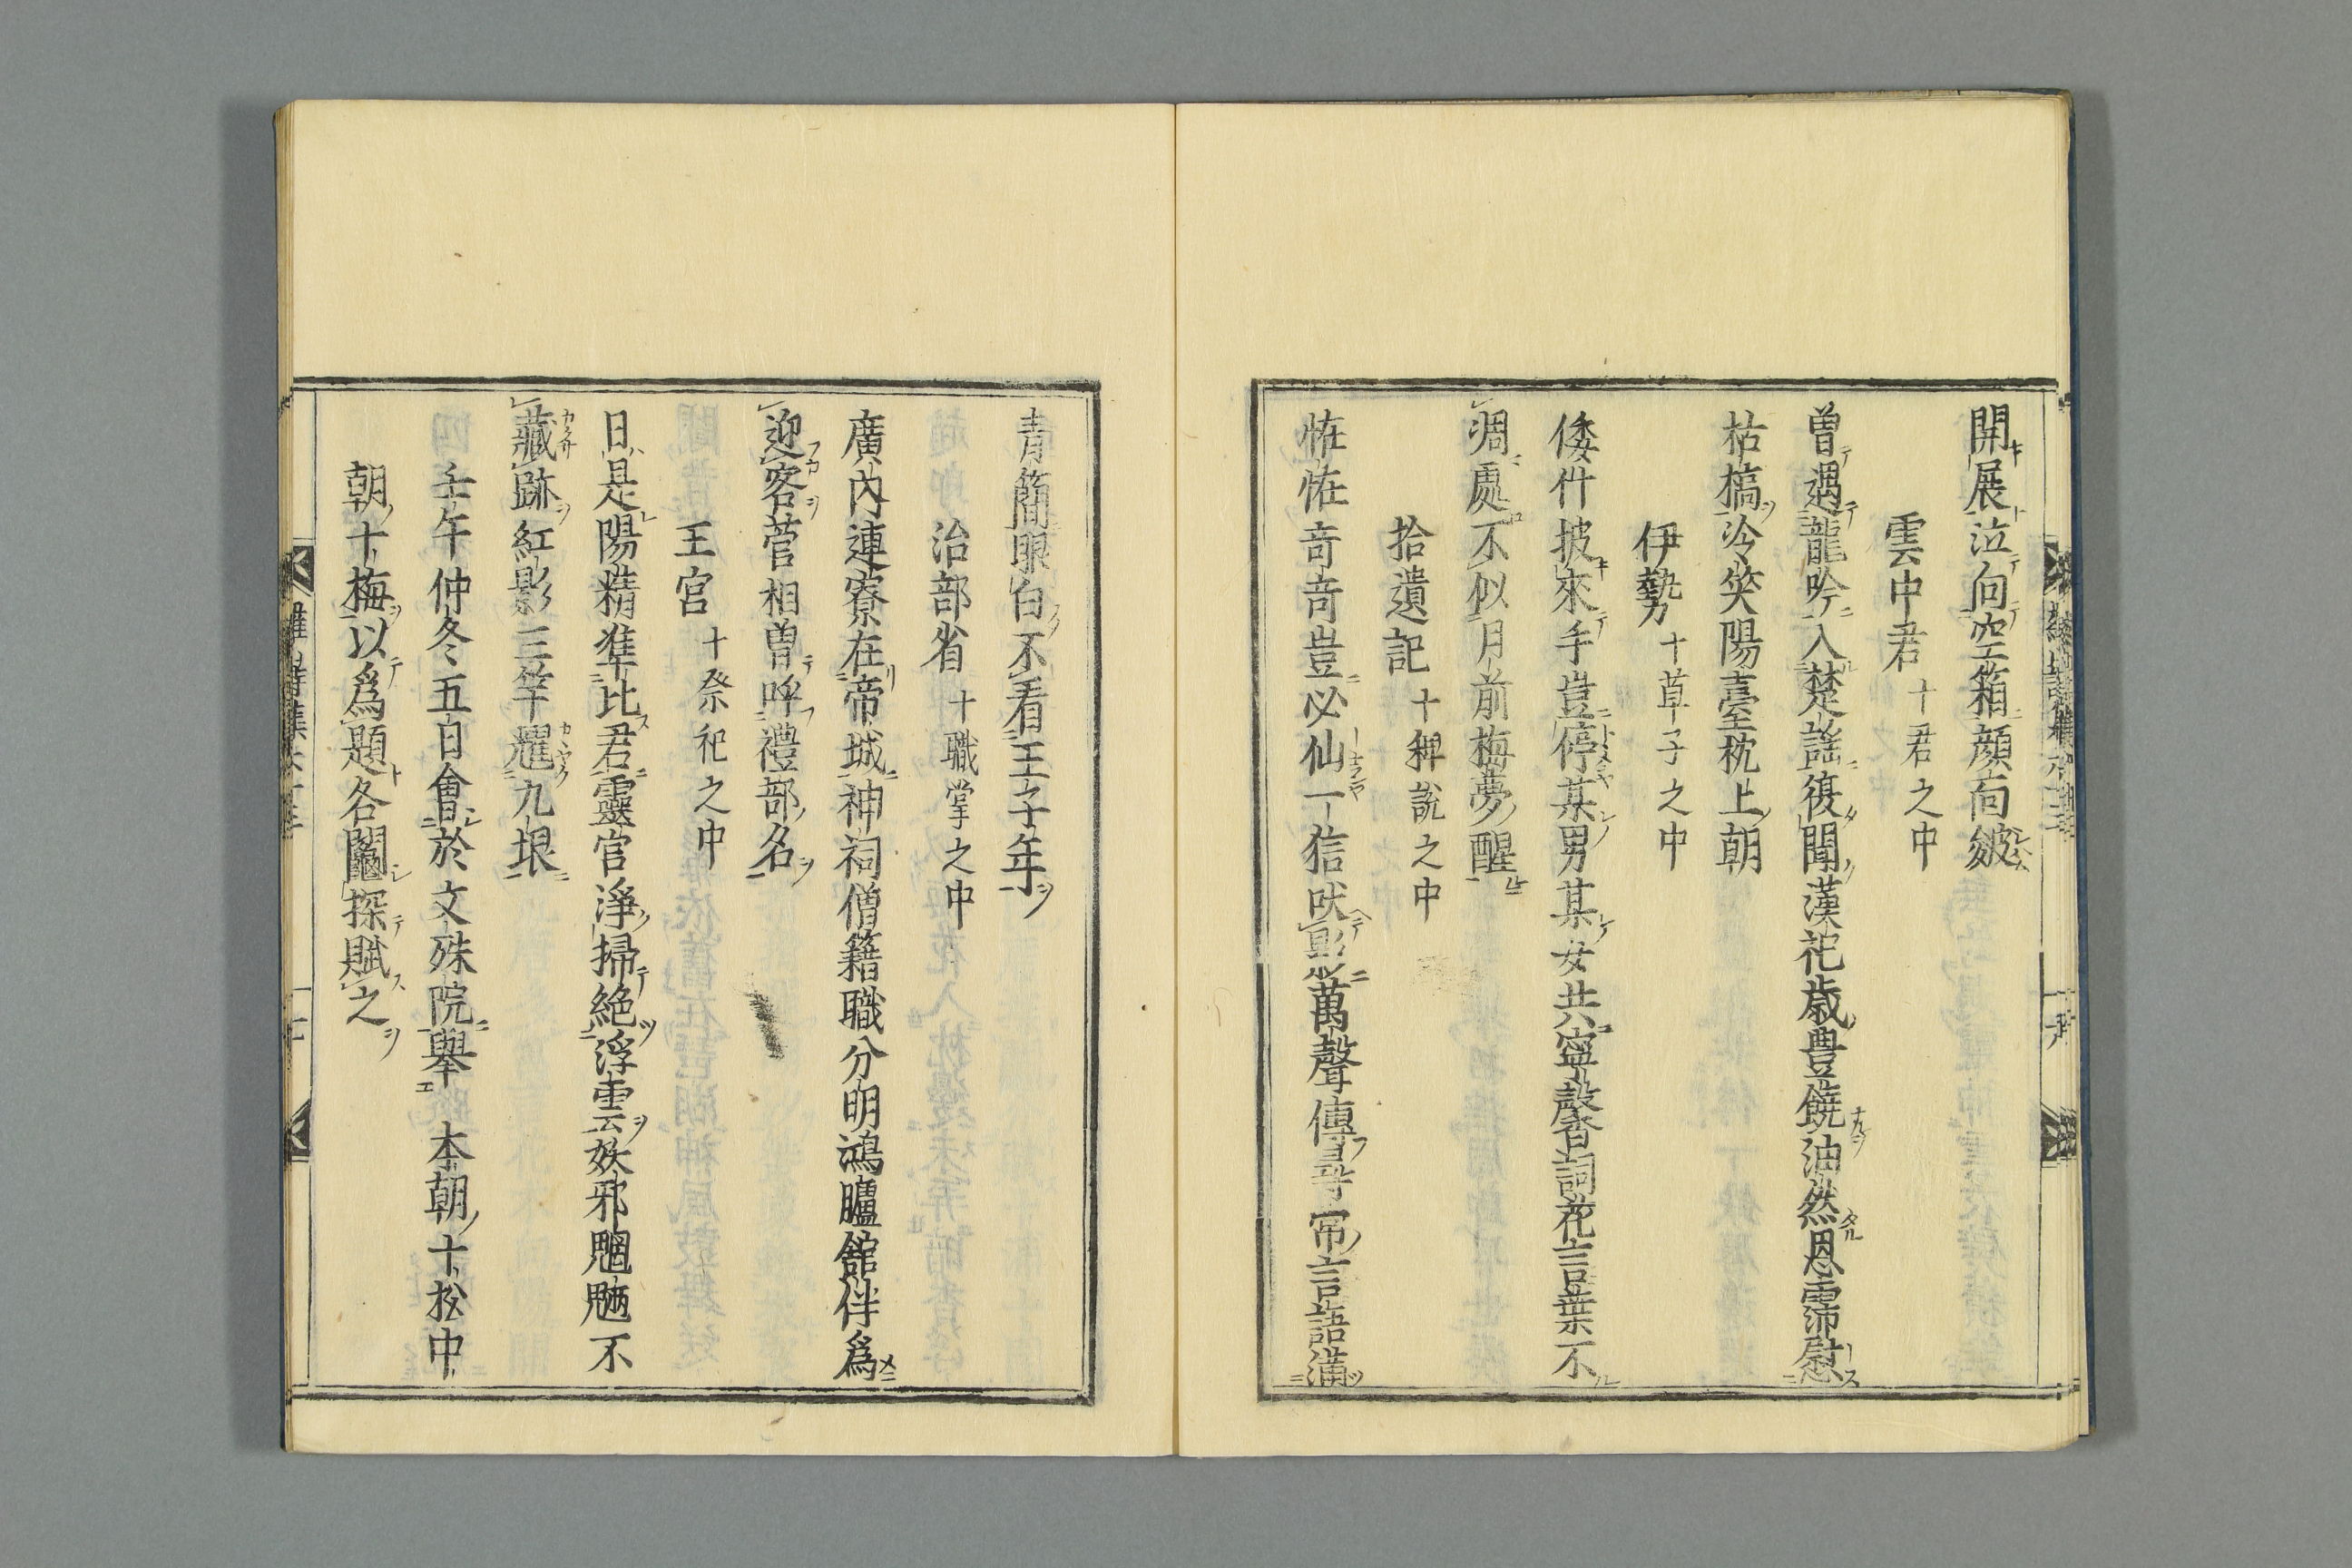 開展泣向空箱顔面皺
雲中君 十君之中
曽遇龍吟入楚謡復聞漢祀歳豊饒油然恩霈慰
枯槁冷笑陽臺枕上朝
伊勢 十草子之中
倭什披來手豈停某男某女共寧馨詞花言葉不
凋處不似月前梅夢醒
拾遺記 十稗說之中
恠恠竒竒豈必仙一信吠影萬聲傳尋常言語滿
青簡眼白不看王子年
治部省 十職掌之中
廣內連寮在帝城神祠僧籍職分明鴻臚舘伴爲
迎客菅相曽呼禮部名
王宮 十祭祀之中
日是陽精準比君靈官淨掃絶浮雲妖邪魍魎不
藏跡紅影三竿耀九垠
壬午仲冬五日會於文殊院擧 本朝十松中
朝十梅以爲題各鬮探賦之